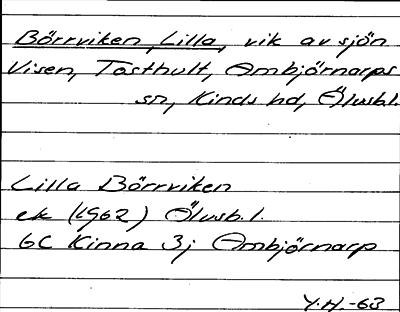 Börrviken, Lilla, vik av sjön
Visen, Tosthult, Ambjörnarps
sn, Kinds hd, Älvsb.l.
Lilla Börrviken
ek (1962) Älvsb.l.
6C Kinna 3j Ambjörnarp
Y.H.-63